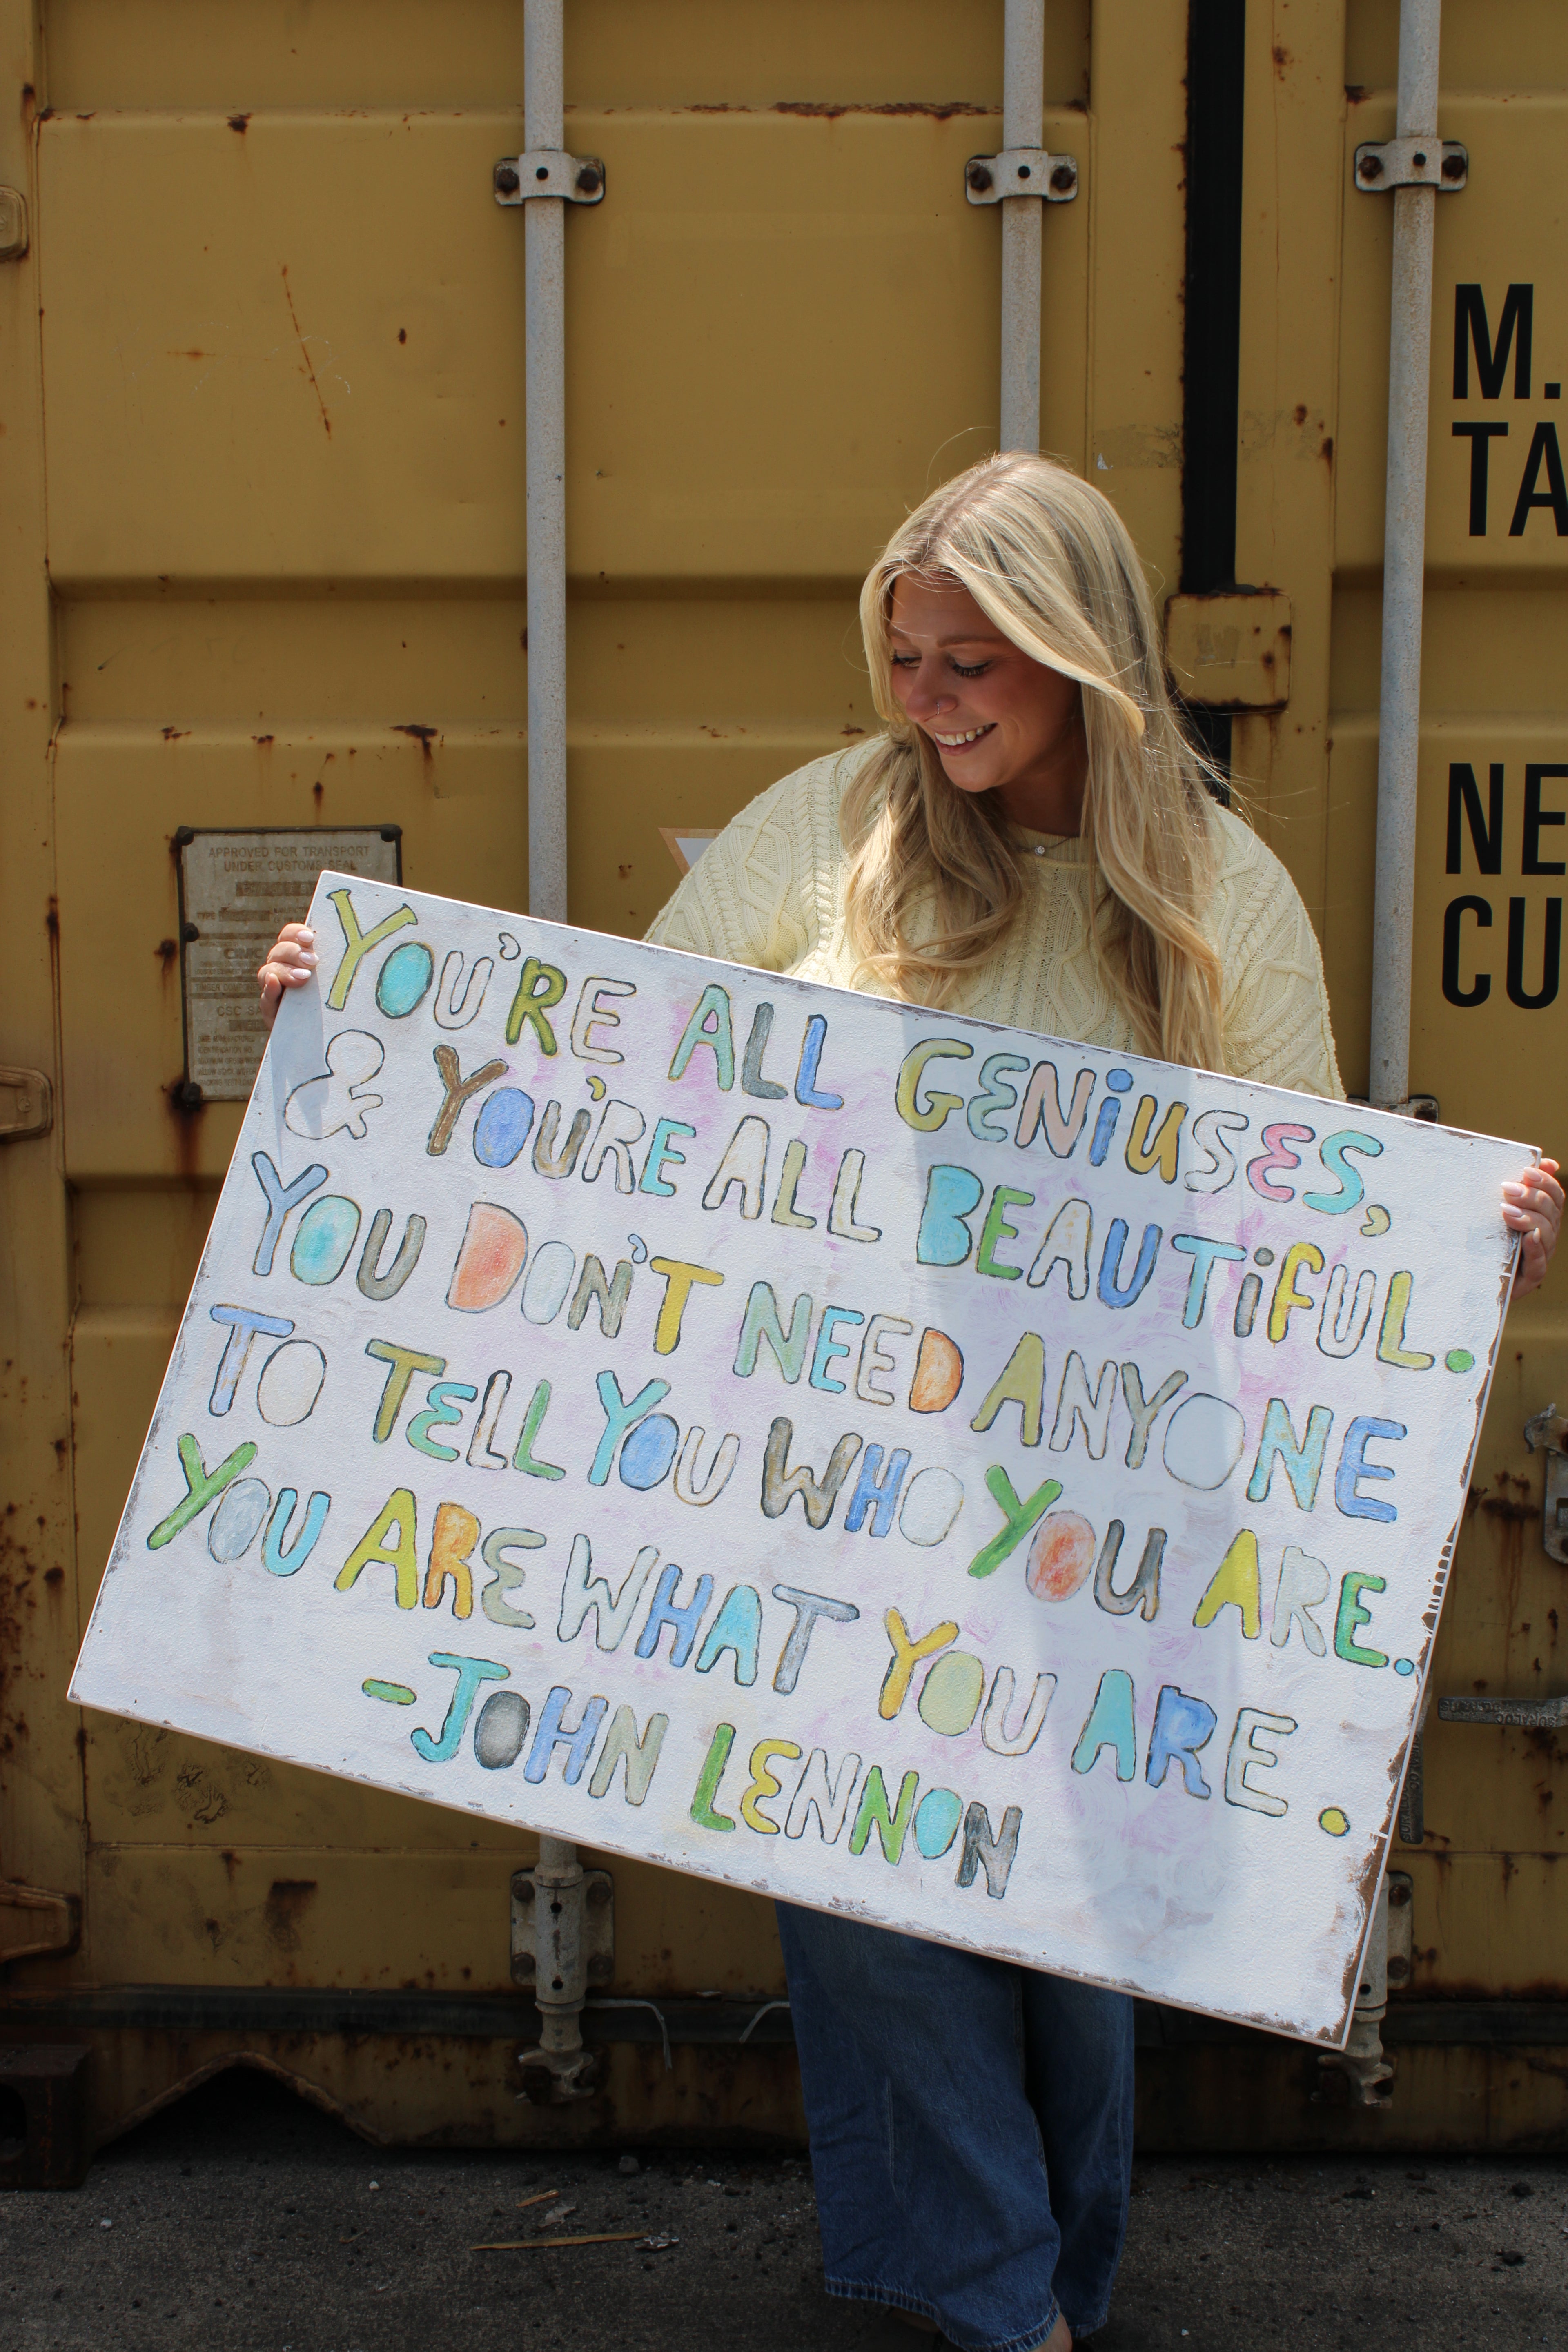 YOU'RE ALL GENiUSES,
& YOU'RE ALL BEAUTiFUL.
YOU DON'T NEED ANYONE
TO TELL YOU WHO YOU ARE.
YOU ARE WHAT YOU ARE.
-JOHN LENNON
APPROVED FOR TRANSPORT
UNDER CUSTOMS SEAL
M.
TA
NE
CU